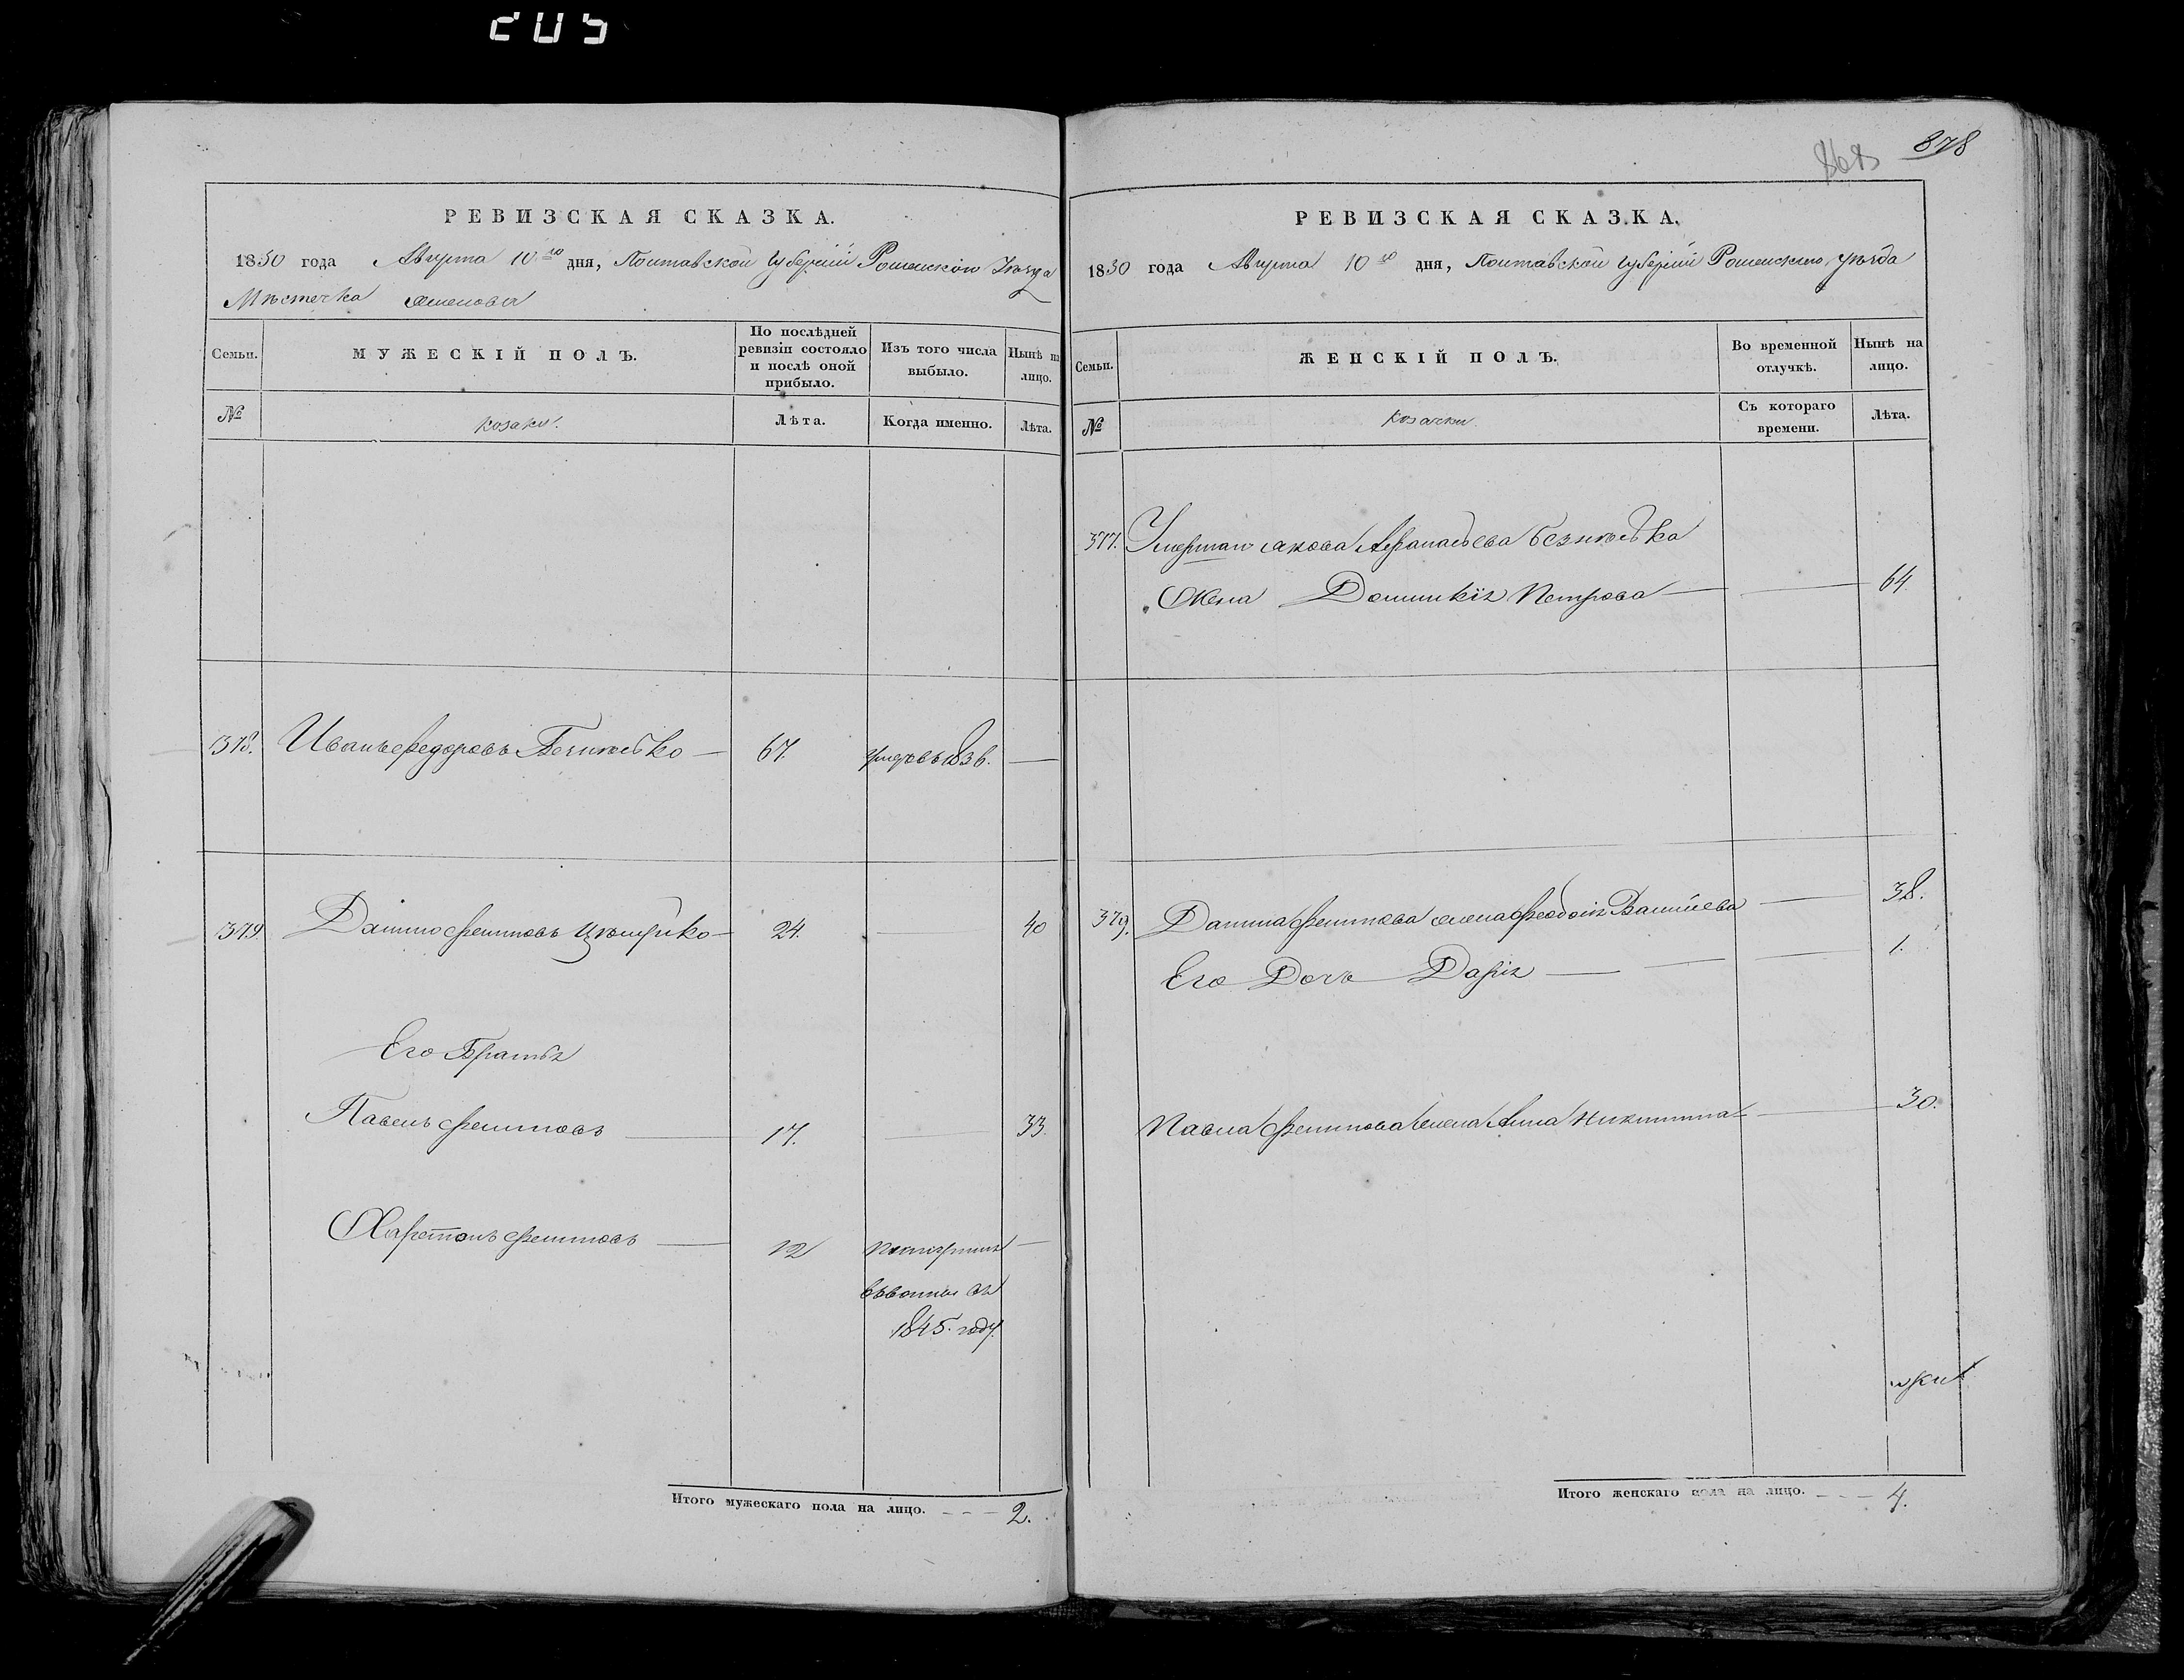 205
878
868
РЕВИЗСКАЯ СКАЗКА.
1850 года Августа 10го дня, Полтавской Губерніи Роменского Уѣзда
Мѣстечка Смелова
Семьи.
МУЖЕСКІЙ ПОЛЪ.
По послѣдней ревизіи состояло и послѣ оной прибыло.
Изъ того числа выбыло.
Нынѣ на лицо.
№
козаки.
Лѣта.
Когда именно.
Лѣта.
378. Иванъ Федоровъ — 67. умеръ въ 1836. —
379 Данило Филиповъ — 24. — 40
Его Братья
Павелъ Филиповъ — 17. — 33.
Харитонъ Филиповъ — 12 —
1845. году.
Итого мужескаго пола на лицо. - - - 2.
РЕВИЗСКАЯ СКАЗКА.
1850 года Августа 10го дня, Полтавской Губерніи Роменского уѣзда
Семьи.
ЖЕНСКІЙ ПОЛЪ.
Во временной отлучкѣ.
Нынѣ на лицо.
№
козачки.
Съ котораго времени.
Лѣта.
377. Якова Афанасьева
Жена Домникія Петрова — — 64.
379. Данила Филипова жена Феодосія — 38.
Его Дочь Дарія — — — 1.
Павла Филипова жена Анна Никитина — 30.
Итого женскаго пола на лицо. - - - 4.